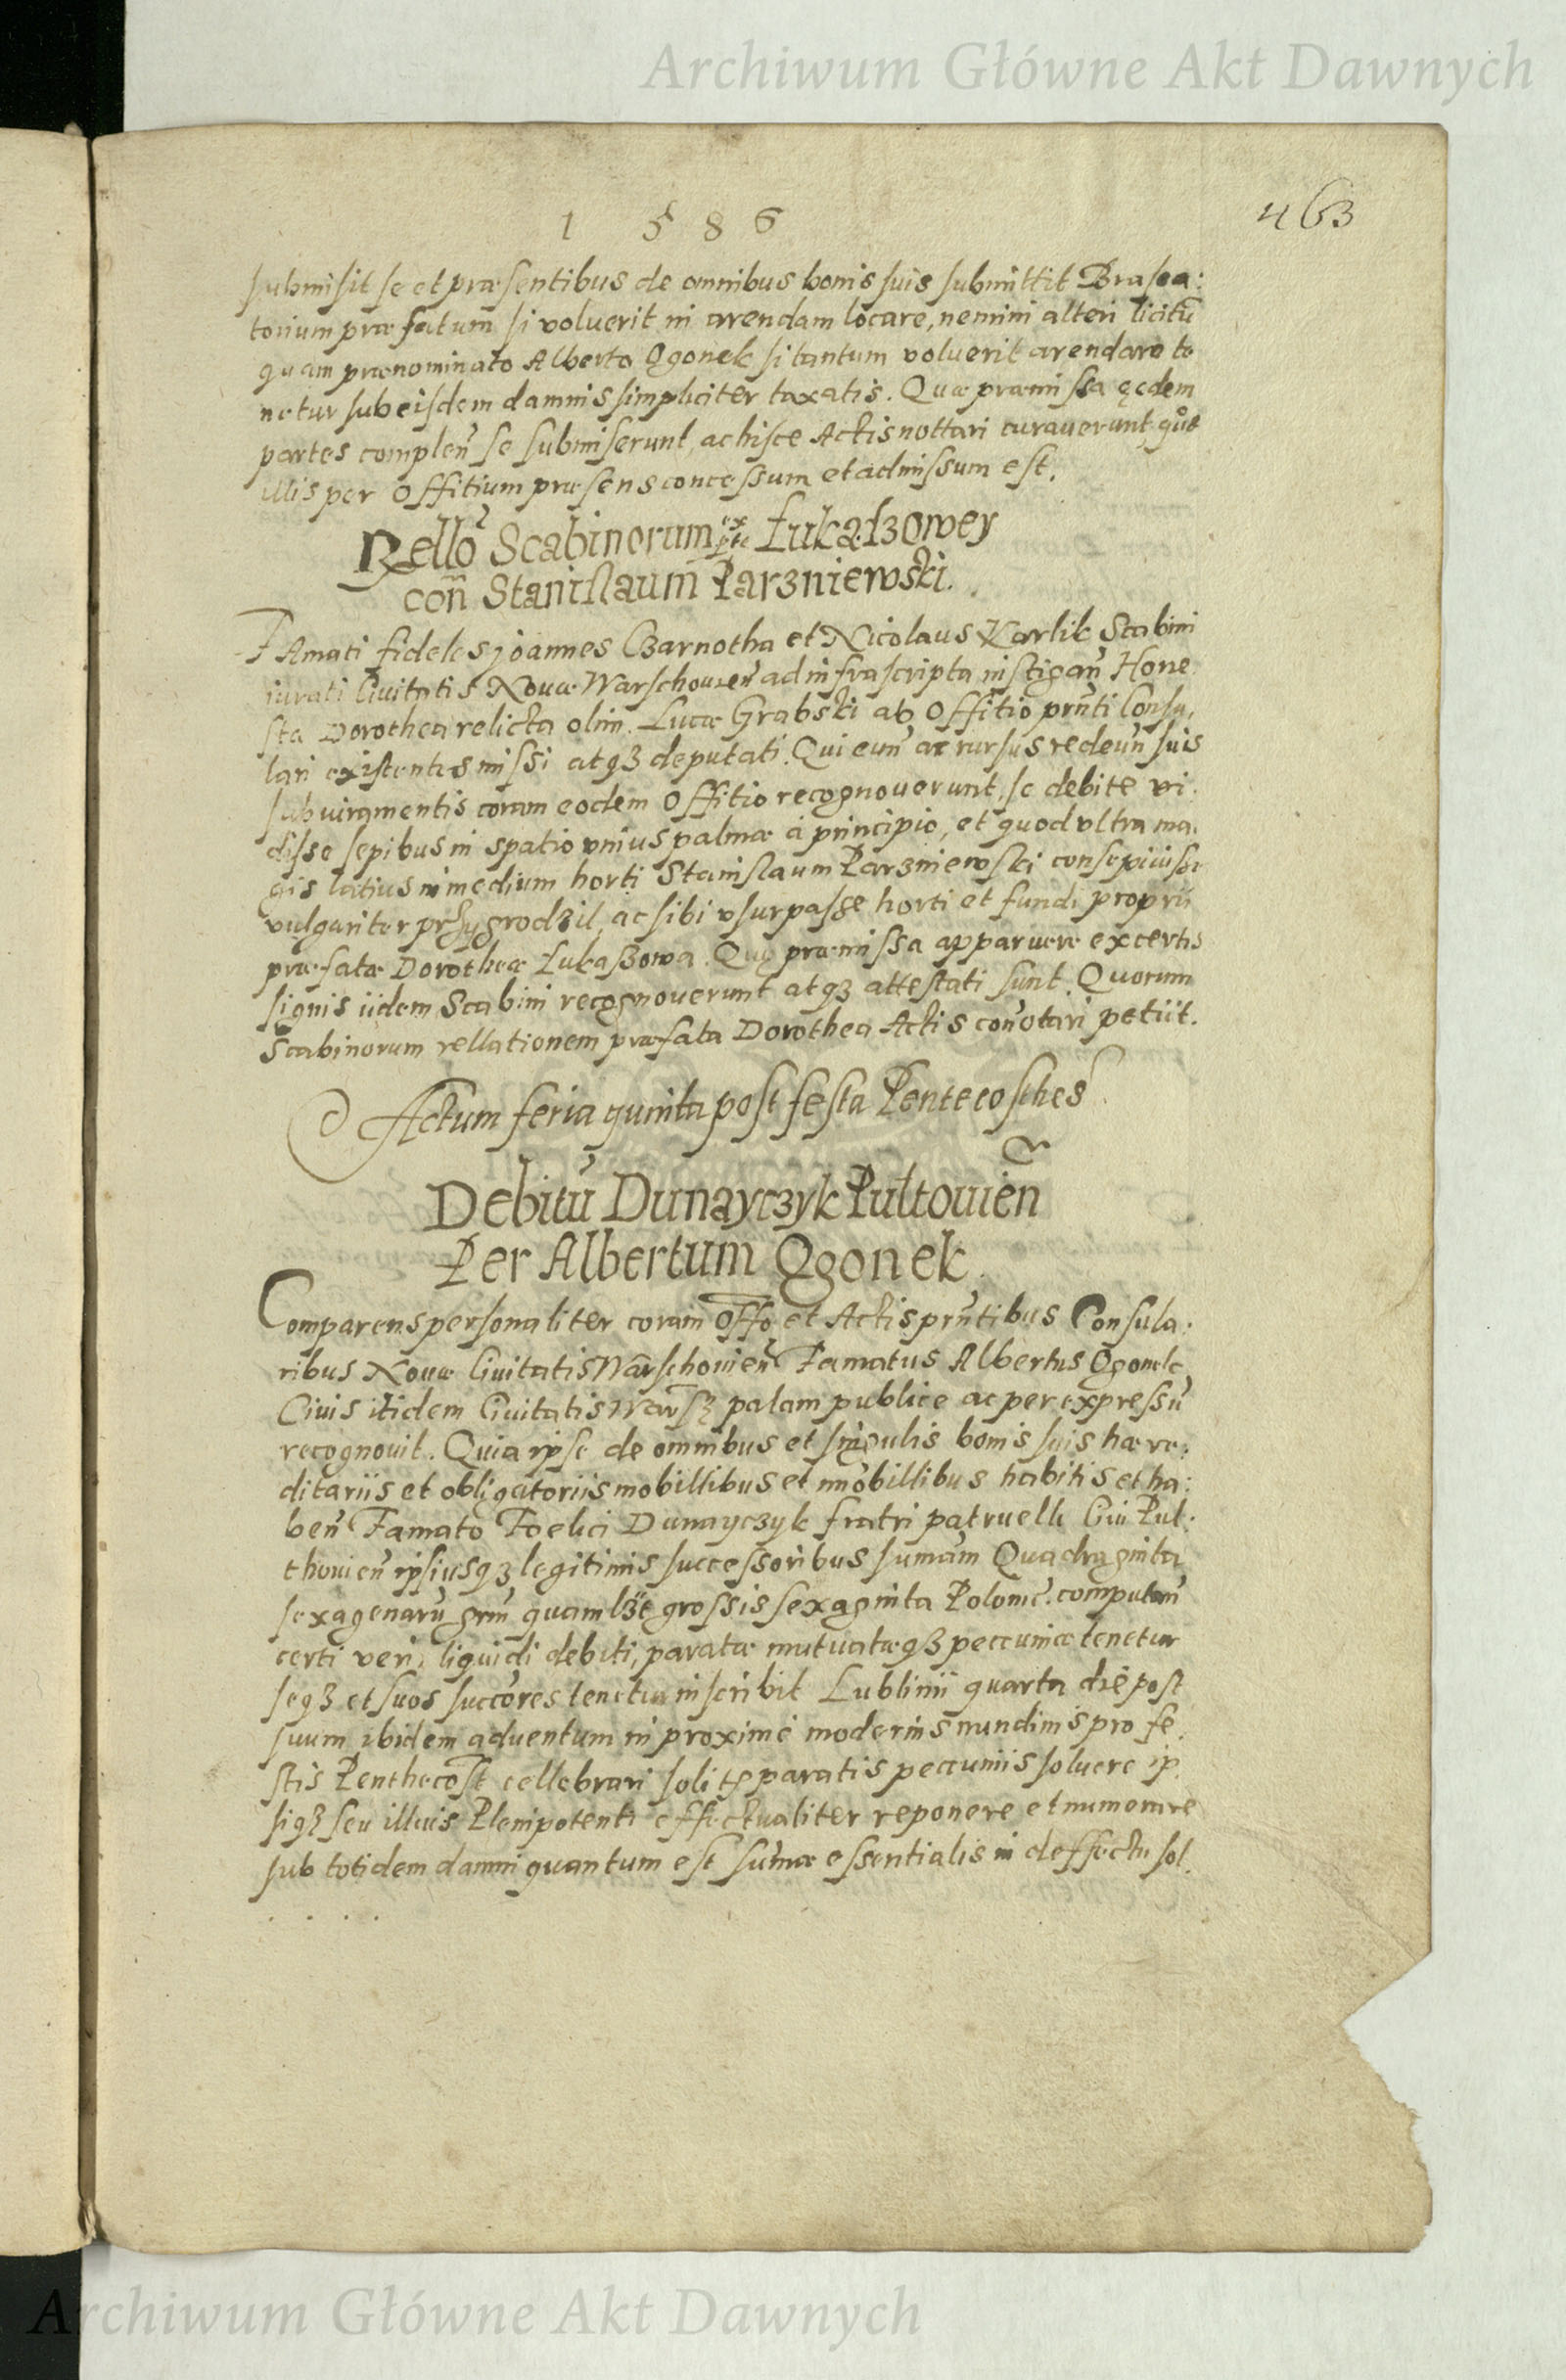 Archiwum Główne Akt Dawnych
1 5 8 6
463
submisit se et præsentibus de omnibus bonis suis submittit Braxea:
torium præfatum si voluerit in arendam locare, nemini alteri licitū
quam prænominato Alberto Ogonek si tantum voluerit arendare te
netur sub eisdem damnis simpliciter taxatis. Quæ præmissa eędem
partes compleñ se submiserunt, ac hisce Actis nottari curaverunt
illis per Offitium præsens concessum et admissum est.
Rello Scabinorum ex pte Łukaszowey
con Stanislaum Parzniewski.
FAmati fideles joannes Czarnotha et Nicolaus Karlik Scabini
iurati Civitatis Novæ Warschovień ad infrascripta instigań Hone
sta Dorothea relicta olim Lucæ Grabski ab Offitio prnti Consu,
lari existentes missi atqz deputati. Qui euń ac rursus redeuń suis
sub iuramentis coram eodem Offitio recognoverunt, se debite vi.
disse sepibus in spatio unius palmæ à principio, et quod ultra ma.
gis latius in medium horti Stanislaum Parzniewski consepivisse
vulgariter przygrodził, ac sibi usurpasse horti et fundi proprii
præfatæ Dorotheæ Lukaszowa. Quę præmissa apparuere ex certis
signis iidem Scabini recognoverunt atqz attestati sunt. Quorum
Scabinorum rellationem præfata Dorothea Actis conotari petiit.
Actum feria quinta post festa Pentecosthes
Debitū Dunayczyk Pultovień
Per Albertum Ogonek.
Comparens personaliter coram Offo et Actis prntibus Consula.
ribus Novæ Civitatis Warschovień Famatus Albertus Ogonek
Civis itidem Civitatis Warsz palam publice ac per expressū
recognovit. Quia ipse de omnibus et singulis bonis suis hære.
ditariis et obligatoriis mobillibus et imobillibus habitis et ha:
beń Famato Foelici Dunayczyk fratri patruelli Civi Pul.
thovień ipsiusqz legitimis successoribus sumam Quadraginta
sexagenarū quamlzt grossis sexaginta Polonic. computań
certi veri, liquidi debiti, paratæ mutuatæqz peccuniæ tenetur
seqz et suos succores tenetur inscribit Lublinii quarta die post
suum ibidem adventum in proximè modernis nundinis pro fe.
stis Penthecost cellebrari solitę paratis peccuniis solvere ip.
siqz seu illius Plenipotenti effectualiter reponere et numerare
sub totidem damni quantum est sumæ essentialis in deffectu sol.
. . . .
Archiwum Główne Akt Dawnych